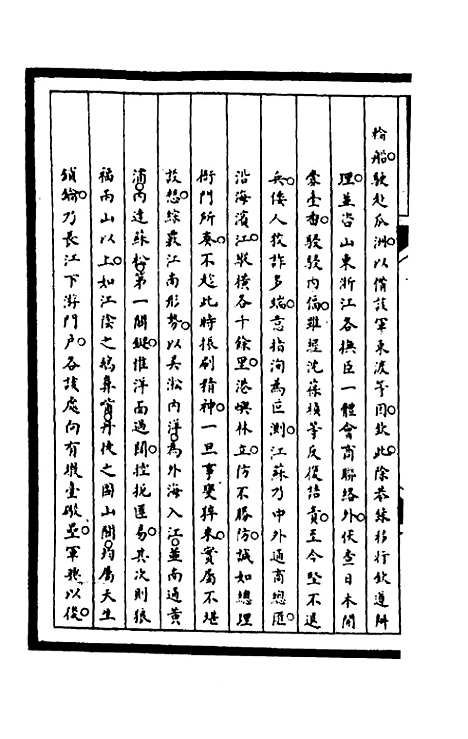 輪船駛赴瓜洲以備該軍東渡等因欽此除恭錄移行欽遵辦
理並咨山東浙江各撫臣一體會商聯絡外伏查日本闖
豪臺番駸駸內偪雖經沈葆楨等反復詰責至今堅不退
兵倭人狡詐多端意指洵為叵測江蘇乃中外通商總匯
沿海濱江縱橫各十餘里港㠘林立防不勝防誠如總理
衙門所奏不趁此時振刷精神一旦事變猝來實屬不堪
設想綜覈江南形勢以吳淞內洋為外海入江並南通黃
浦內達蘇松第一關鍵惟洋面過闊控扼匪易其次則狼
福兩山以上如江陰之鵝鼻嘴丹徒之圌山關均屬天生
鎖鑰乃長江下游門戶各該處向有礟臺礟壘軍興以後